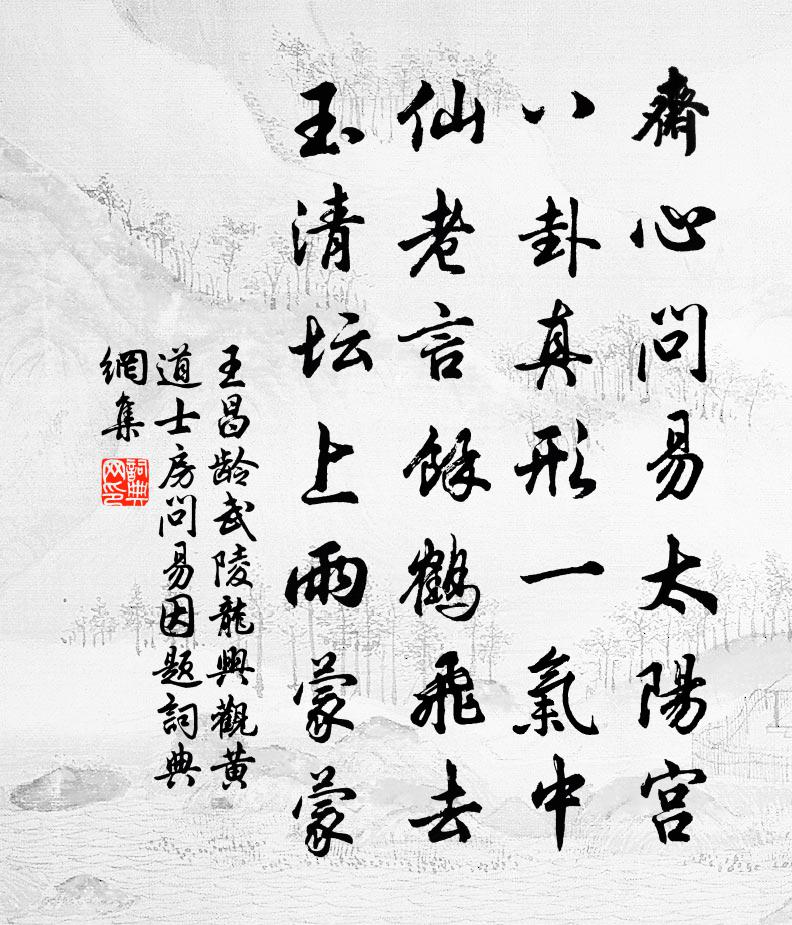 齋心問易太陽宮
八卦真形一氣中
仙老言餘鶴飛去
玉清坛上雨蒙蒙
王昌龄武陵龍興觀黄
道士房問易因题詞典
網集
詞典
网印